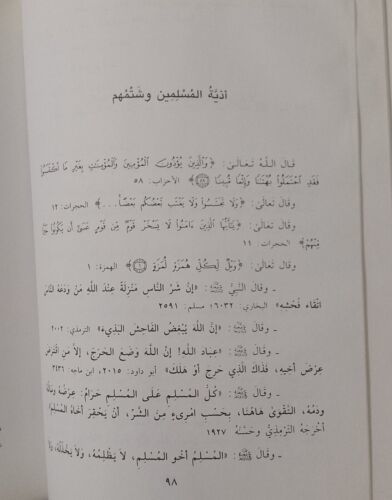 أذيَّةُ المُسْلِمِين وشَتْمُهم
قال اللَّهُ تعـالـىٰ: ﴿وَالَّذِينَ يُؤْذُونَ الْمُؤْمِنِينَ وَالْمُؤْمِنَاتِ بِغَيْرِ مَا اكْتَسَبُوا
فَقَدِ احْتَمَلُوا بُهْتَانًا وَإِثْمًا مُّبِينًا ۝٥٨﴾ الأحزاب: ٥٨
وقال تعالىٰ: ﴿وَلَا تَجَسَّسُوا وَلَا يَغْتَب بَّعْضُكُم بَعْضًا...﴾ الحجرات: ١٢
وقال تعالىٰ: ﴿يَا أَيُّهَا الَّذِينَ آمَنُوا لَا يَسْخَرْ قَوْمٌ مِّن قَوْمٍ عَسَىٰ أَن يَكُونُوا خَيْرًا
مِّنْهُمْ﴾ الحجرات: ١١
وقال تعالىٰ: ﴿وَيْلٌ لِّكُلِّ هُمَزَةٍ لُّمَزَةٍ ۝١﴾ الهمزة: ١
ـ وقال النَّبيُّ ﷺ: «إنَّ شَرَّ النَّاسِ مَنزِلَةً عِنْدَ اللَّهِ مَن وَدَعَهُ النَّاسُ
اتِّقاء فُحْشِهِ» البخاري: ٦٠٣٢، مسلم: ٢٥٩١
ـ وقال ﷺ: «إنَّ اللَّهَ يُبْغِضُ الفَاحِشَ البَذِيءَ» الترمذي: ٢٠٠٢
ـ وقال ﷺ: «عِبادَ اللَّهِ! إنَّ اللَّهَ وَضَعَ الحَرَجَ، إلاَّ مَن اقْتَرَضَ
عِرْضَ أخيهِ، فَذَاكَ الَّذي حَرِجَ أوْ هَلَكَ» أبو داود: ٢٠١٥، ابن ماجه: ٣٤٣٦
ـ وقال ﷺ: «كُلُّ المُسْلِمِ عَلَى المُسْلِمِ حَرَامٌ: عِرْضُهُ ومَالُهُ
ودَمُهُ، التَّقوَىٰ هَاهُنَا، بِحَسْبِ امْرِىءٍ مِنَ الشَّرِّ، أنْ يَحْقِرَ أخَاهُ المُسْلِمَ»
أخرجه الترمذيُّ وحسَّنهُ ١٩٢٧
ـ وقال ﷺ: «المُسْلِمُ أخُو المُسْلِمِ، لاَ يَظْلِمُهُ، وَلاَ يَخْذُلُهُ، وَلاَ
٩٨